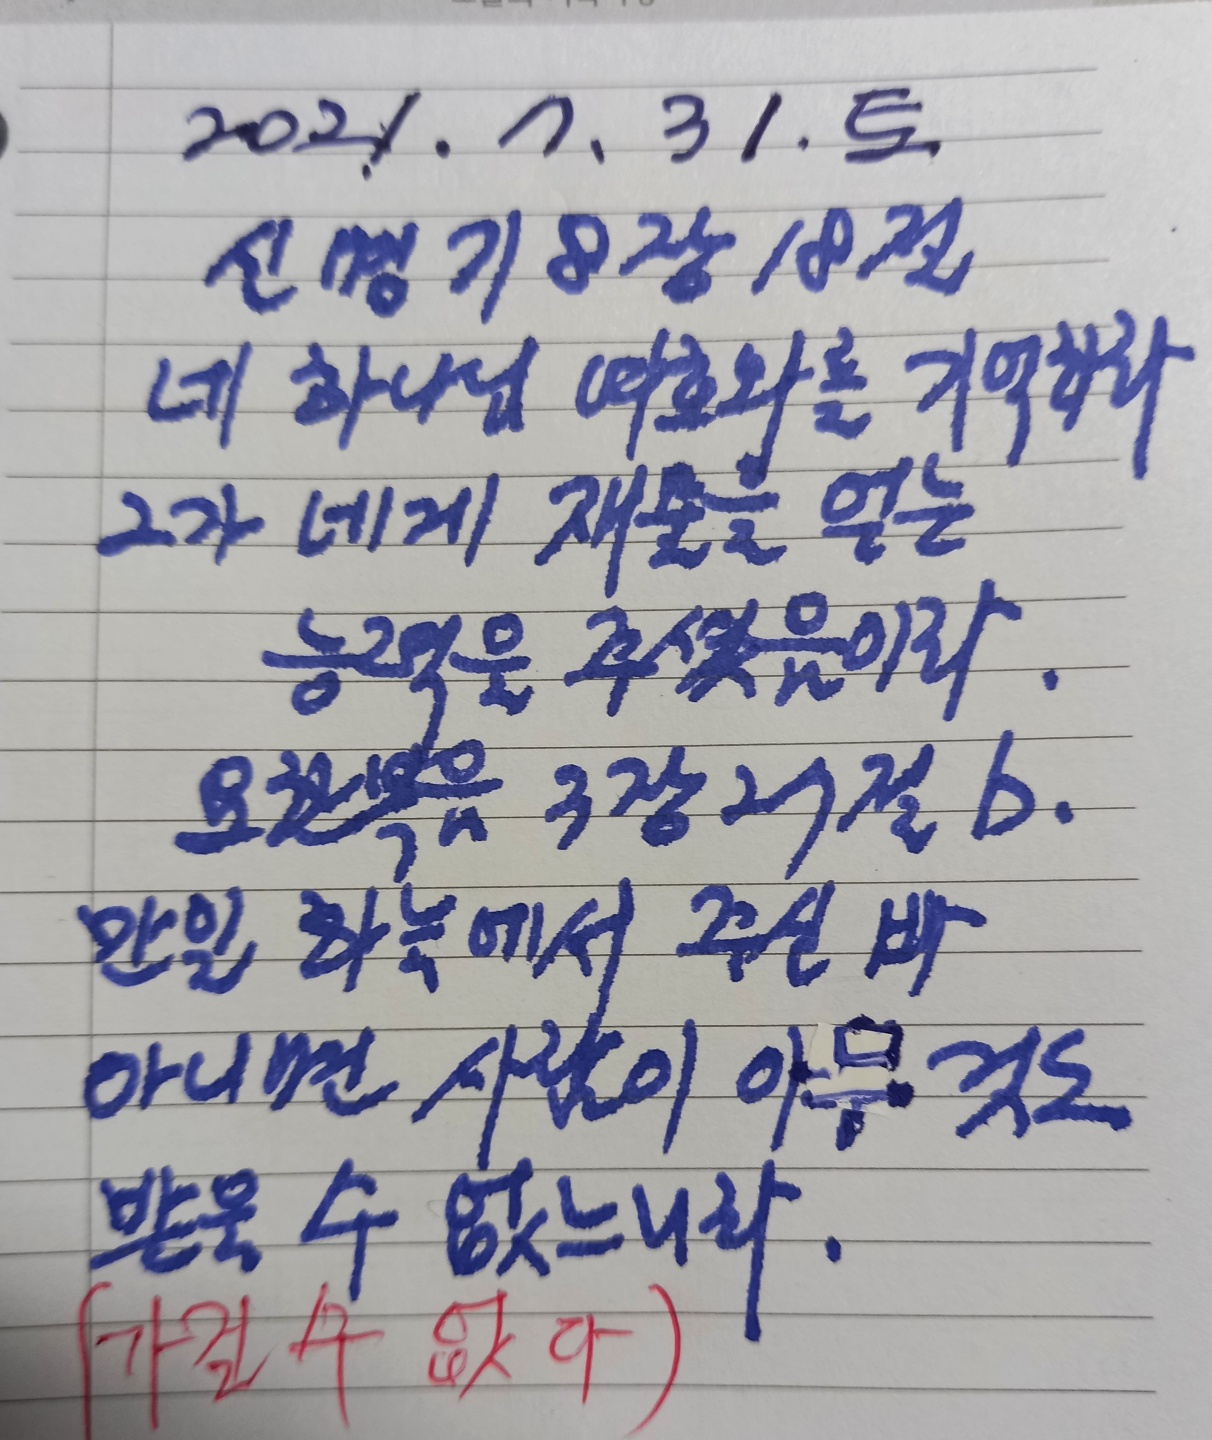 2021. 7. 31. 토
신명기 8장 18절
네 하나님 여호와를 기억하라
그가 네게 재물을 얻는
능력을 주셨음이라.
요한복음 3장 27절 b.
만일 하늘에서 주신 바
아니면 사람이 아무 것도
받을 수 없느니라.
(가질 수 없다)